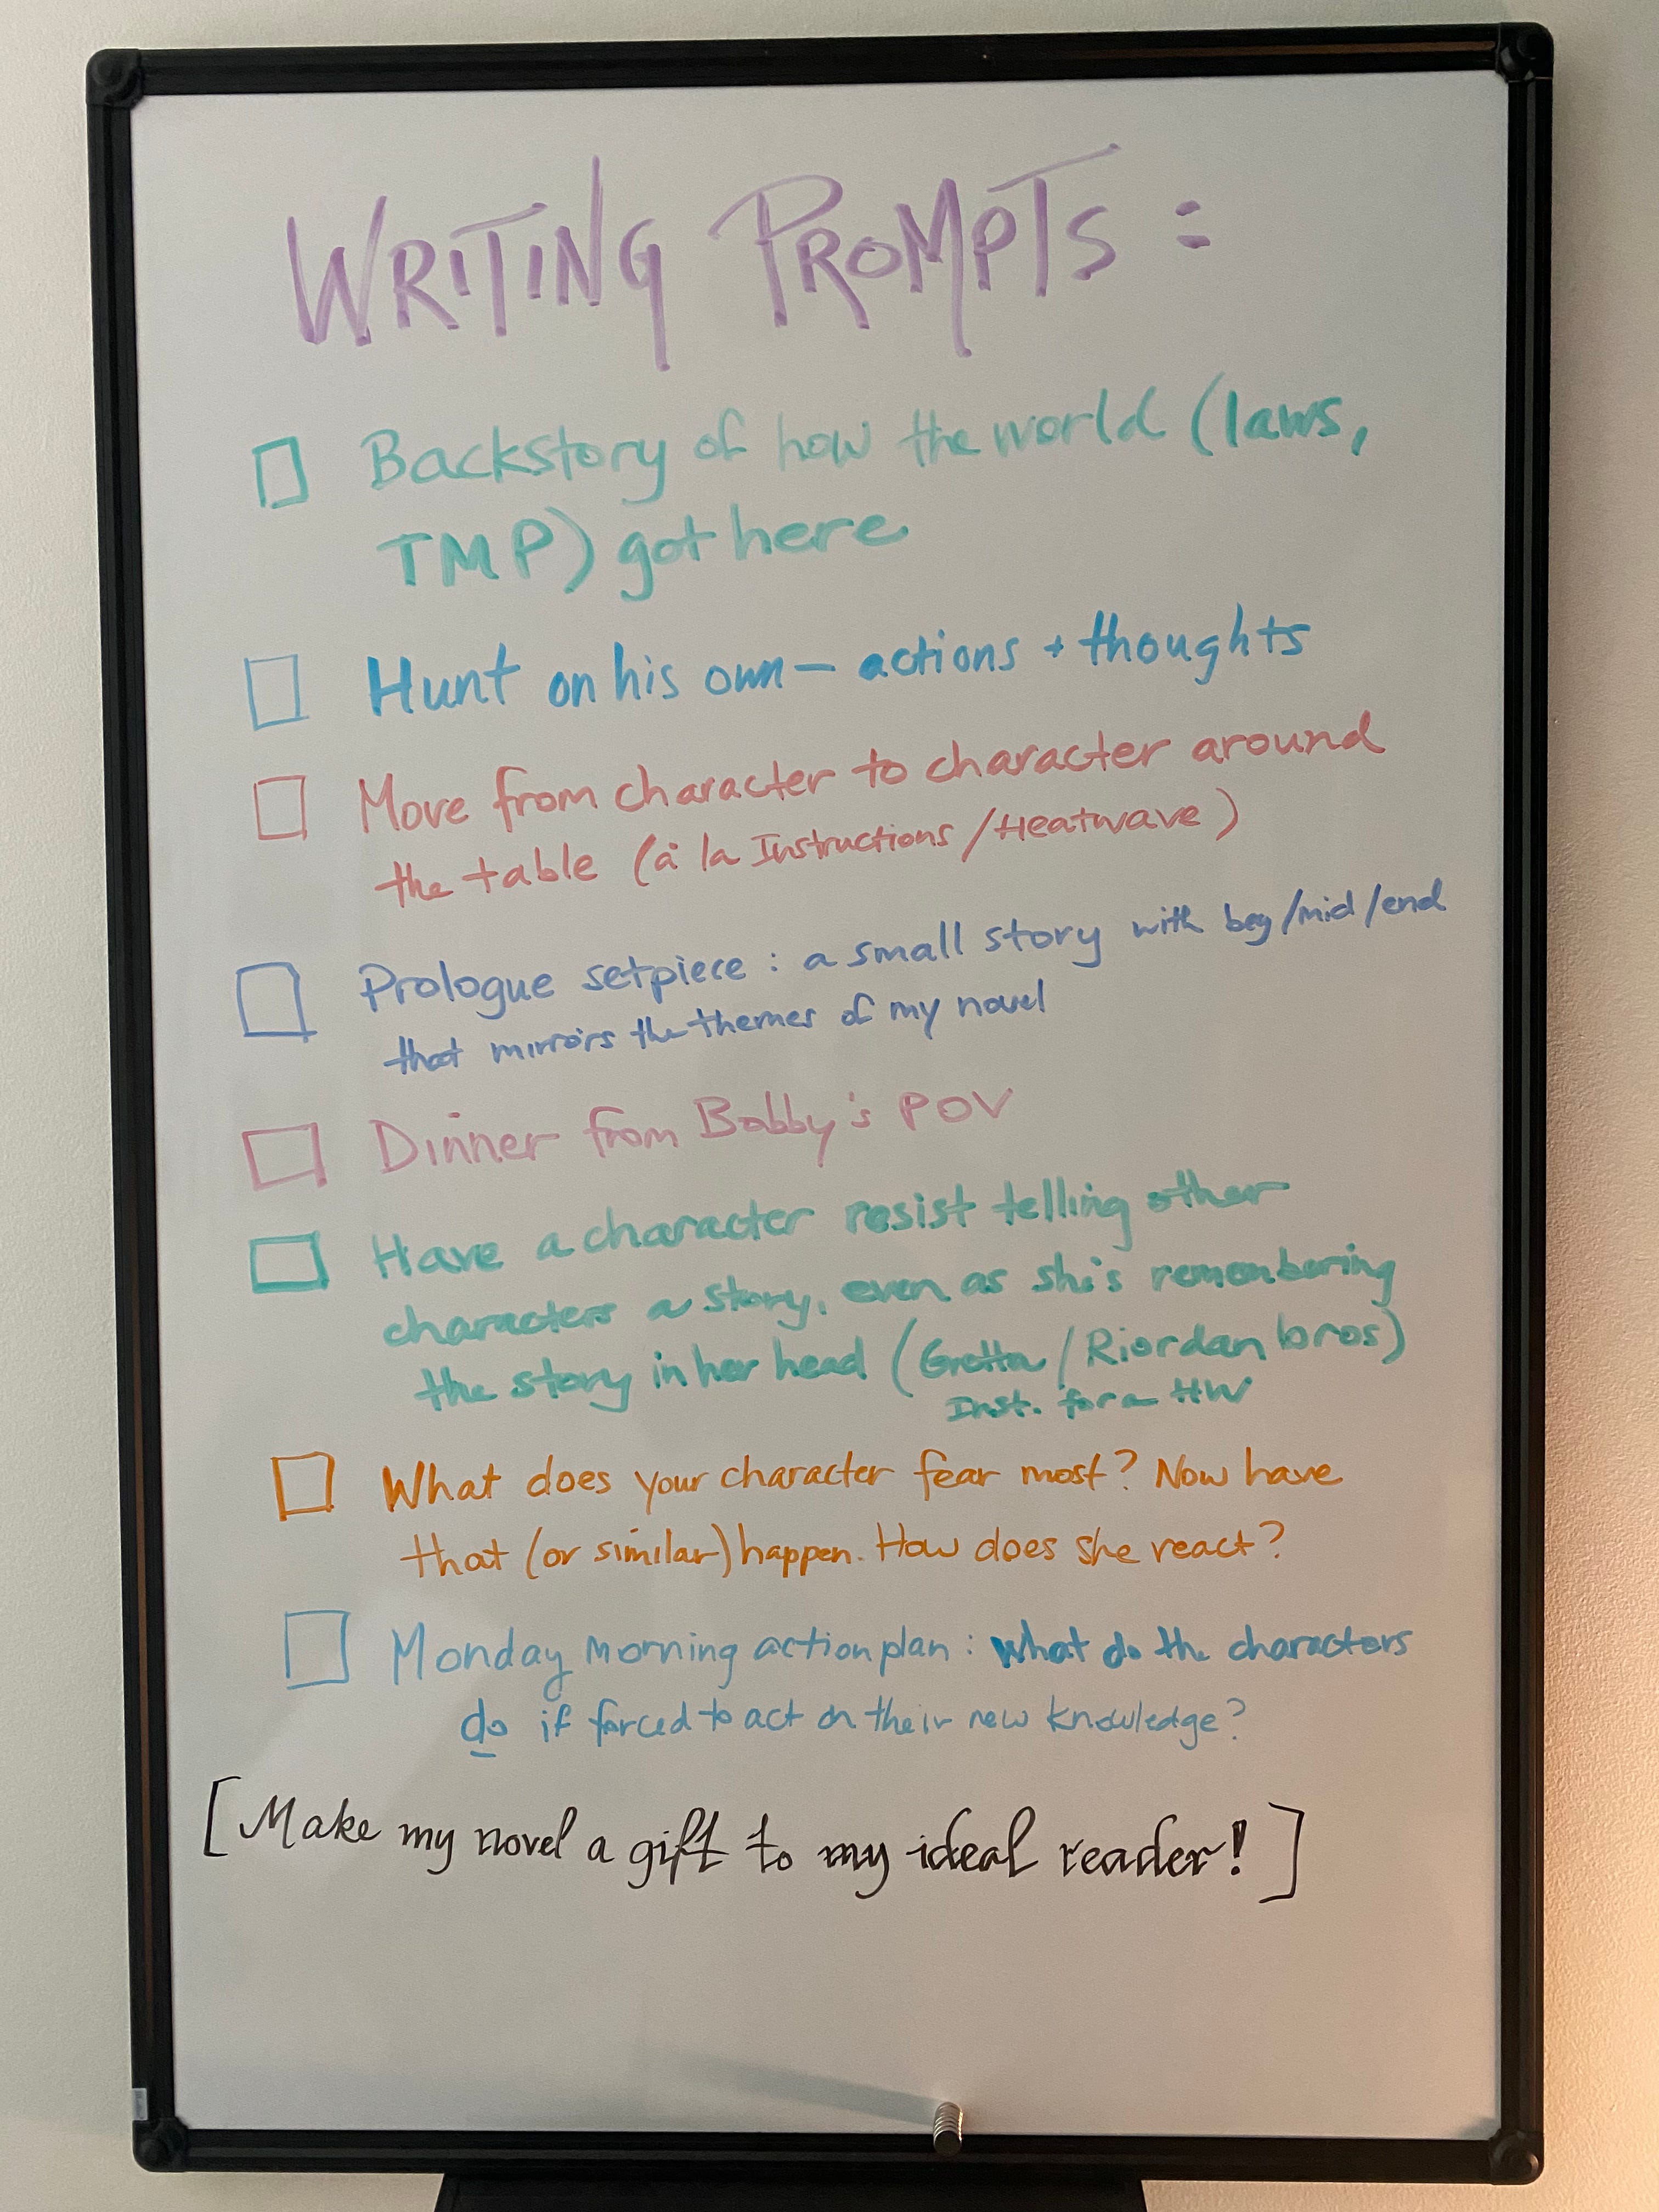 WRITING PROMPTS :
Backstory of how the world (laws,
TMP) got here
Hunt on his own – actions + thoughts
Move from character to character around
the table (à la Instructions / Heatwave)
Prologue setpiece : a small story with beg/mid/end
that mirrors the themes of my novel
Dinner from Bobby's POV
Have a character resist telling other
characters a story, even as she's remembering
the story in her head (Gretta / Riordan bros)
Inst. for a HW
What does your character fear most? Now have
that (or similar) happen. How does she react?
Monday morning action plan : What do the characters
do if forced to act on their new knowledge?
[Make my novel a gift to my ideal reader!]